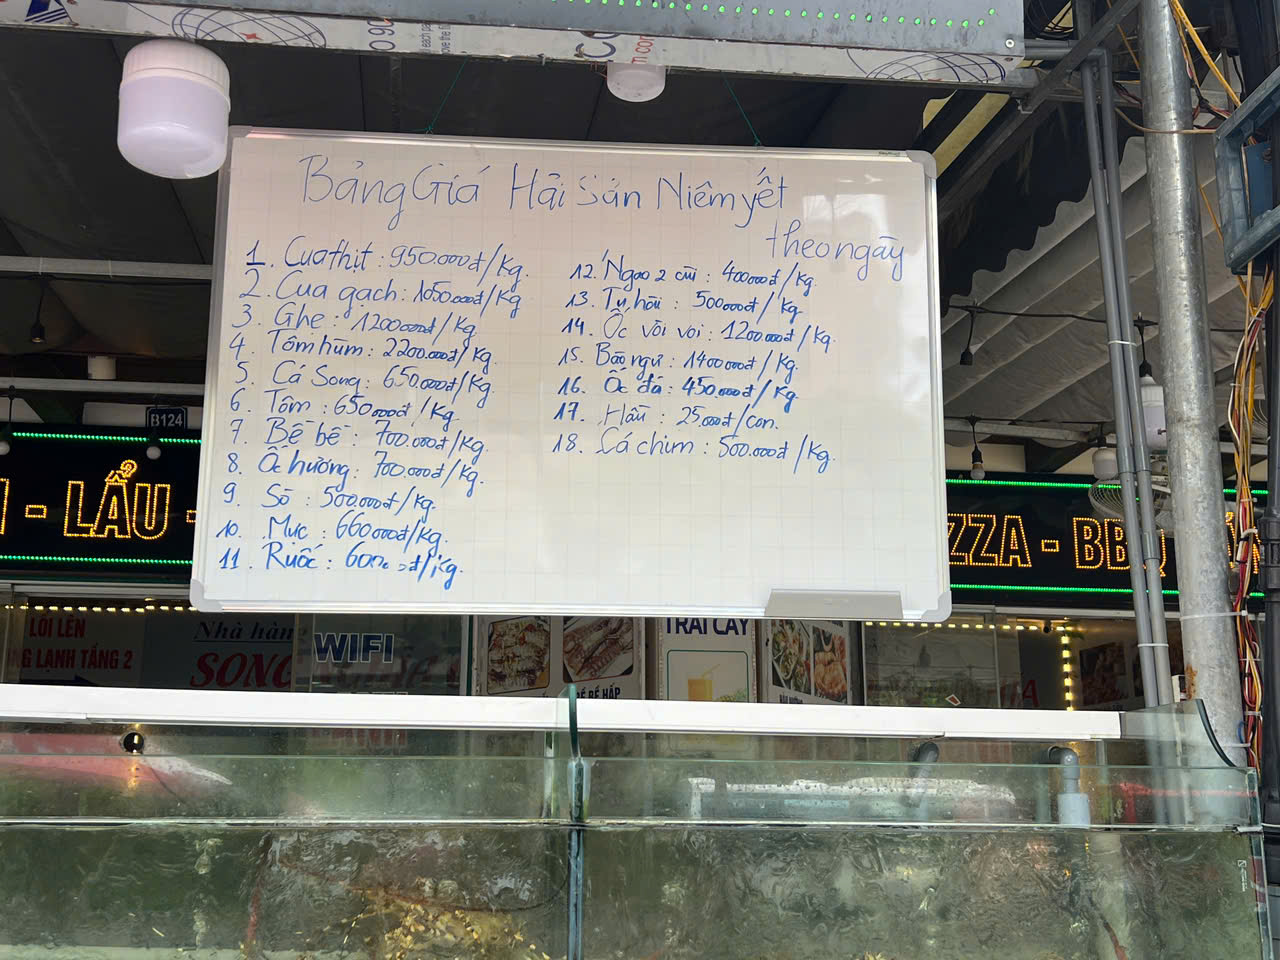 Bảng Giá Hải Sản Niêm yết
theo ngày
1. Cua thịt : 950.000đ/Kg.
2. Cua gạch : 1050.000đ/Kg
3. Ghẹ : 1200.000đ/Kg
4. Tôm hùm : 2200.000đ/Kg.
5. Cá Song : 650.000đ/Kg.
6. Tôm : 650.000đ/Kg.
7. Bề bề : 700.000đ/Kg.
8. Ốc hương : 700.000đ/Kg.
9. Sò : 500.000đ/Kg.
10. Mực : 660.000đ/Kg.
11. Ruốc : đ/Kg.
12. Ngao 2 cùi : 400.000đ/Kg.
13. Tu hài : 500.000đ/Kg
14. Ốc vòi voi : 1200.000đ/Kg.
15. Bào ngư : 1400.000đ/Kg.
16. Ốc đá : 450.000đ/Kg
17. Hàu : 25.000đ/Con.
18. Cá chim : 500.000đ/Kg.
B124
- LẨU -
ZZA - BBQ
LỐI LÊN
LẠNH TẦNG 2
Nhà hàng
SONG
WIFI
BỀ BỀ HẤP
TRÁI CÂY